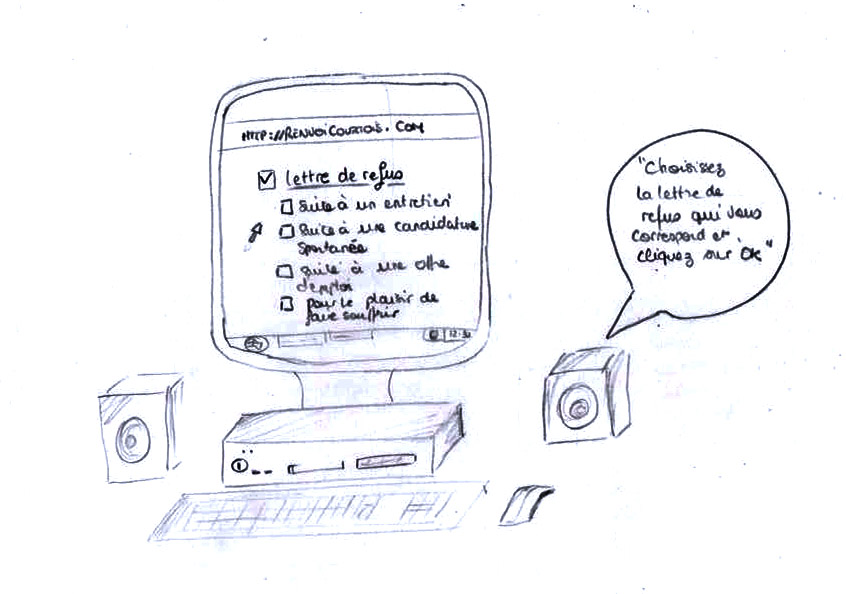 HTTP://RENVOICOURTOIS.COM
lettre de refus
suite à un entretien
suite à une candidature
spontanée
suite à une offre
d'emploi
pour le plaisir de
faire souffrir
"Choisissez
la lettre de
refus qui vous
correspond et
cliquez sur "OK"